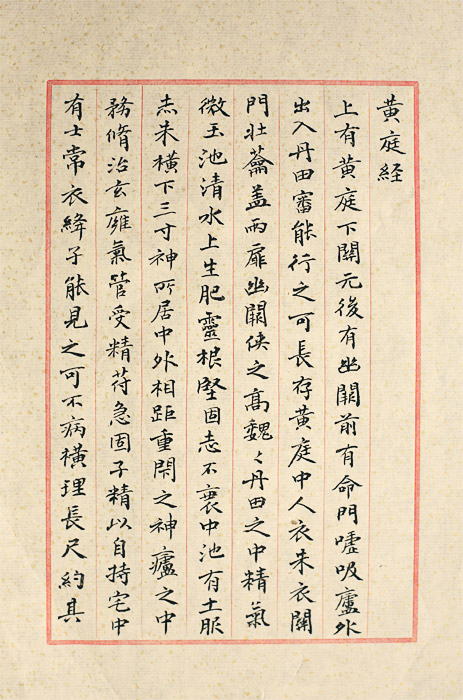 黄庭経
上有黄庭下關元後有幽闕前有命門噓吸廬外
出入丹田審能行之可長存黄庭中人衣朱衣關
門壯蘥盖兩扉幽闕俠之高魏〻丹田之中精氣
微玉池清水上生肥靈根堅固志不衰中池有士服
赤朱橫下三寸神所居中外相距重閇之神廬之中
務脩治玄癰氣管受精苻急固子精以自持宅中
有士常衣絳子能見之可不病橫理長尺約其